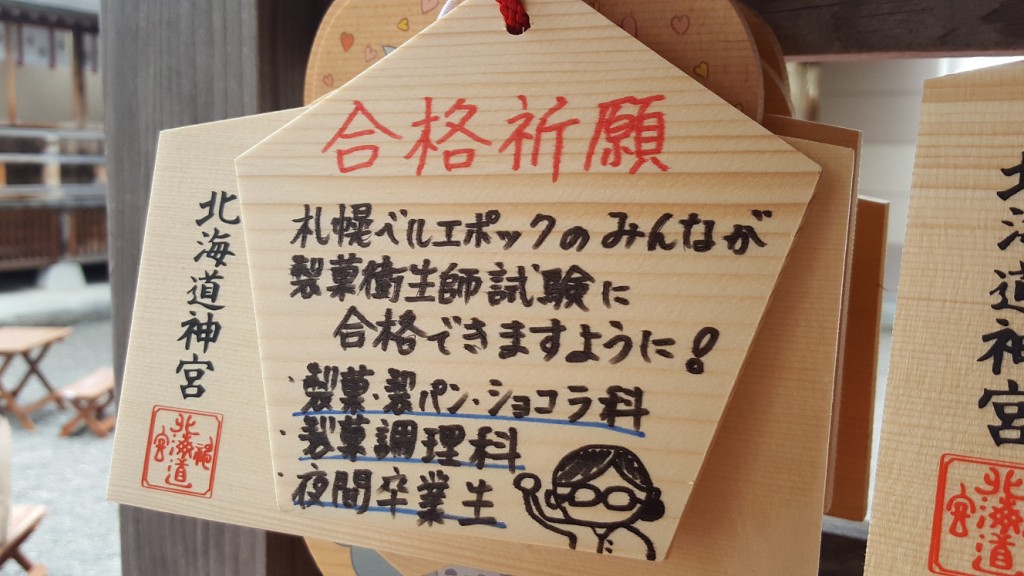 合格祈願
札幌ベルエポックのみんなが
製菓衛生師試験に
合格できますように!
・製菓・製パン・ショコラ科
・製菓調理科
・夜間卒業生
北海道神宮
北海道神宮
北海道神宮
北海道神宮